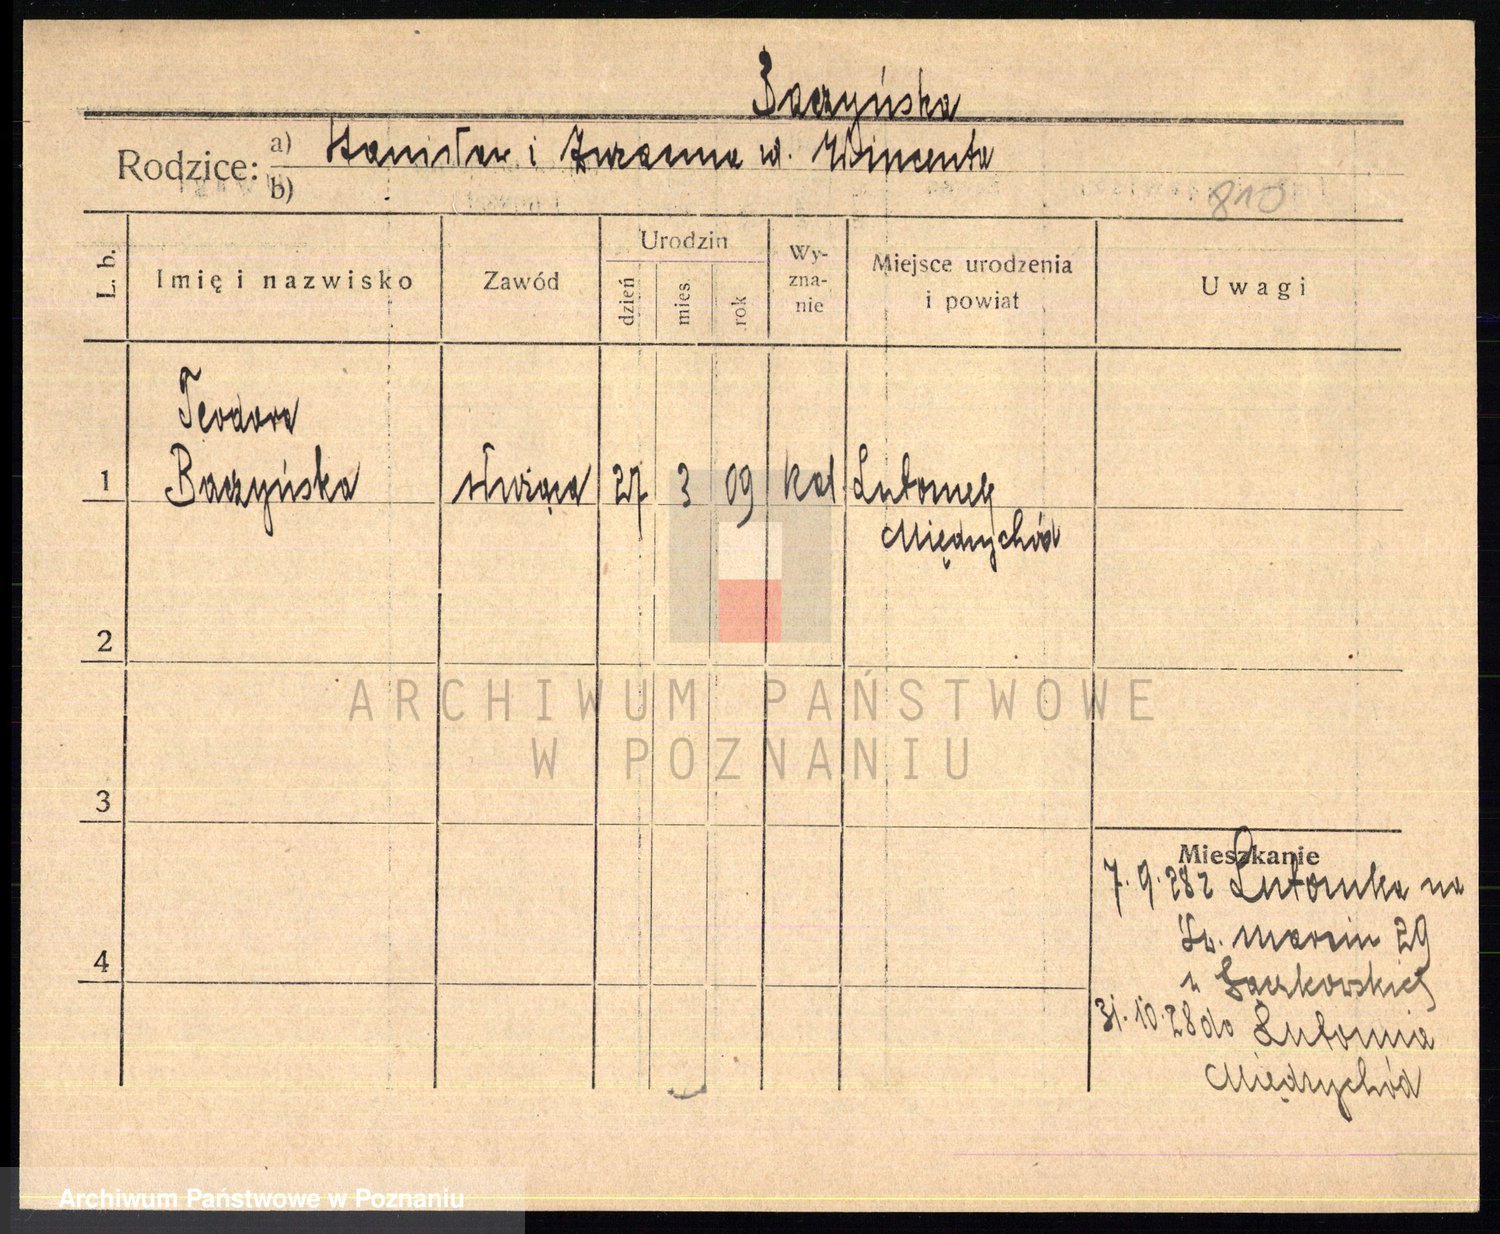 Baczyńska
Rodzice: a) Stanisław i Zuzanna ur. Wincenta
b)
810
L. b.
Imię i nazwisko
Zawód
Urodzin
dzień
mies.
rok
Wy-
zna-
nie
Miejsce urodzenia
i powiat
Uwagi
Teodora
1 Baczyńska służąca 27 3 09 kat. Lutomek
Międzychód
2
3
4
Mieszkanie
7.9.28 z Lutomka na
Św. Marcin 29
31.10.28 do Lutomia
Międzychód
ARCHIWUM PAŃSTWOWE
W POZNANIU
Archiwum Państwowe w Poznaniu